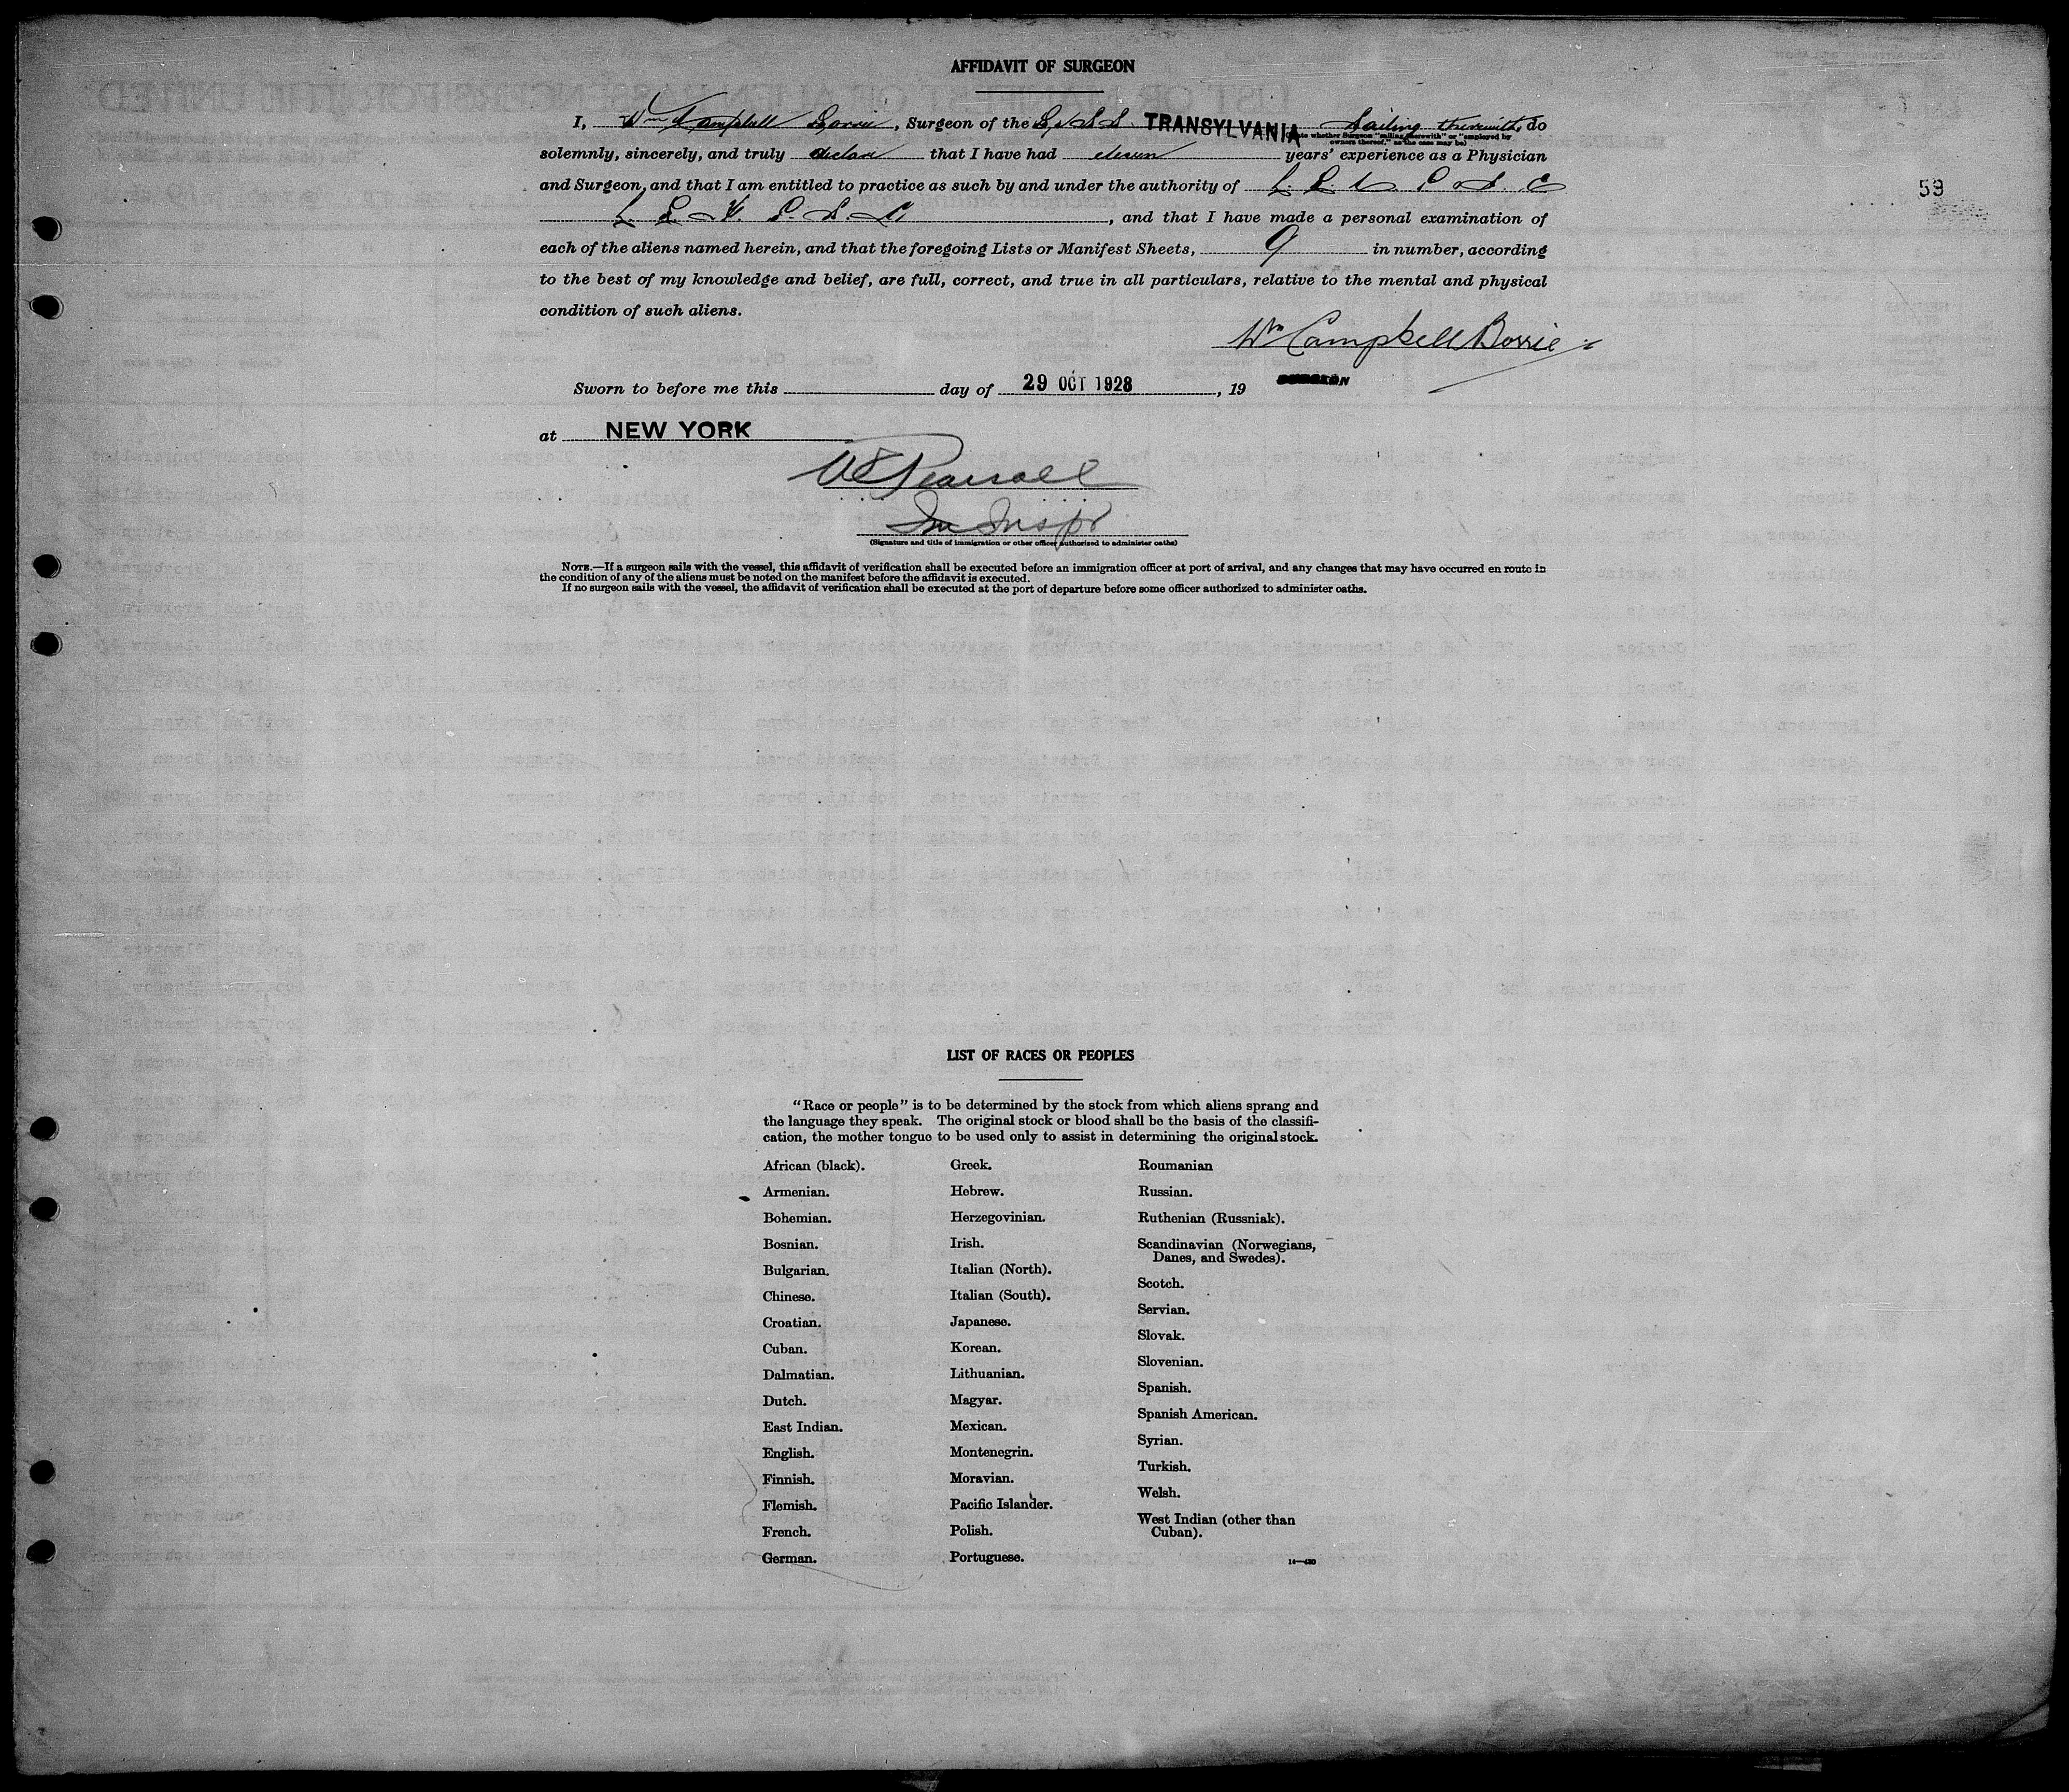 AFFIDAVIT OF SURGEON
I, Wm Campbell Borrie, Surgeon of the S.S. TRANSYLVANIA Sailing therewith, do
(State whether Surgeon "sailing therewith" or "employed by owners thereof," as the case may be)
solemnly, sincerely, and truly declare that I have had eleven years' experience as a Physician
and Surgeon, and that I am entitled to practice as such by and under the authority of
, and that I have made a personal examination of
each of the aliens named herein, and that the foregoing Lists or Manifest Sheets, 9 in number, according
to the best of my knowledge and belief, are full, correct, and true in all particulars, relative to the mental and physical
condition of such aliens.
Wm Campbell Borrie
SURGEON
Sworn to before me this day of 29 OCT 1928, 19
at NEW YORK
Im Inspr
(Signature and title of immigration or other officer authorized to administer oaths)
NOTE.—If a surgeon sails with the vessel, this affidavit of verification shall be executed before an immigration officer at port of arrival, and any changes that may have occurred en route in
the condition of any of the aliens must be noted on the manifest before the affidavit is executed.
If no surgeon sails with the vessel, the affidavit of verification shall be executed at the port of departure before some officer authorized to administer oaths.
59
LIST OF RACES OR PEOPLES
"Race or people" is to be determined by the stock from which aliens sprang and
the language they speak. The original stock or blood shall be the basis of the classifi-
cation, the mother tongue to be used only to assist in determining the original stock.
African (black).
Armenian.
Bohemian.
Bosnian.
Bulgarian.
Chinese.
Croatian.
Cuban.
Dalmatian.
Dutch.
East Indian.
English.
Finnish.
Flemish.
French.
German.
Greek.
Hebrew.
Herzegovinian.
Irish.
Italian (North).
Italian (South).
Japanese.
Korean.
Lithuanian.
Magyar.
Mexican.
Montenegrin.
Moravian.
Pacific Islander.
Polish.
Portuguese.
Roumanian
Russian.
Ruthenian (Russniak).
Scandinavian (Norwegians,
Danes, and Swedes).
Scotch.
Servian.
Slovak.
Slovenian.
Spanish.
Spanish American.
Syrian.
Turkish.
Welsh.
West Indian (other than
Cuban).
14—430